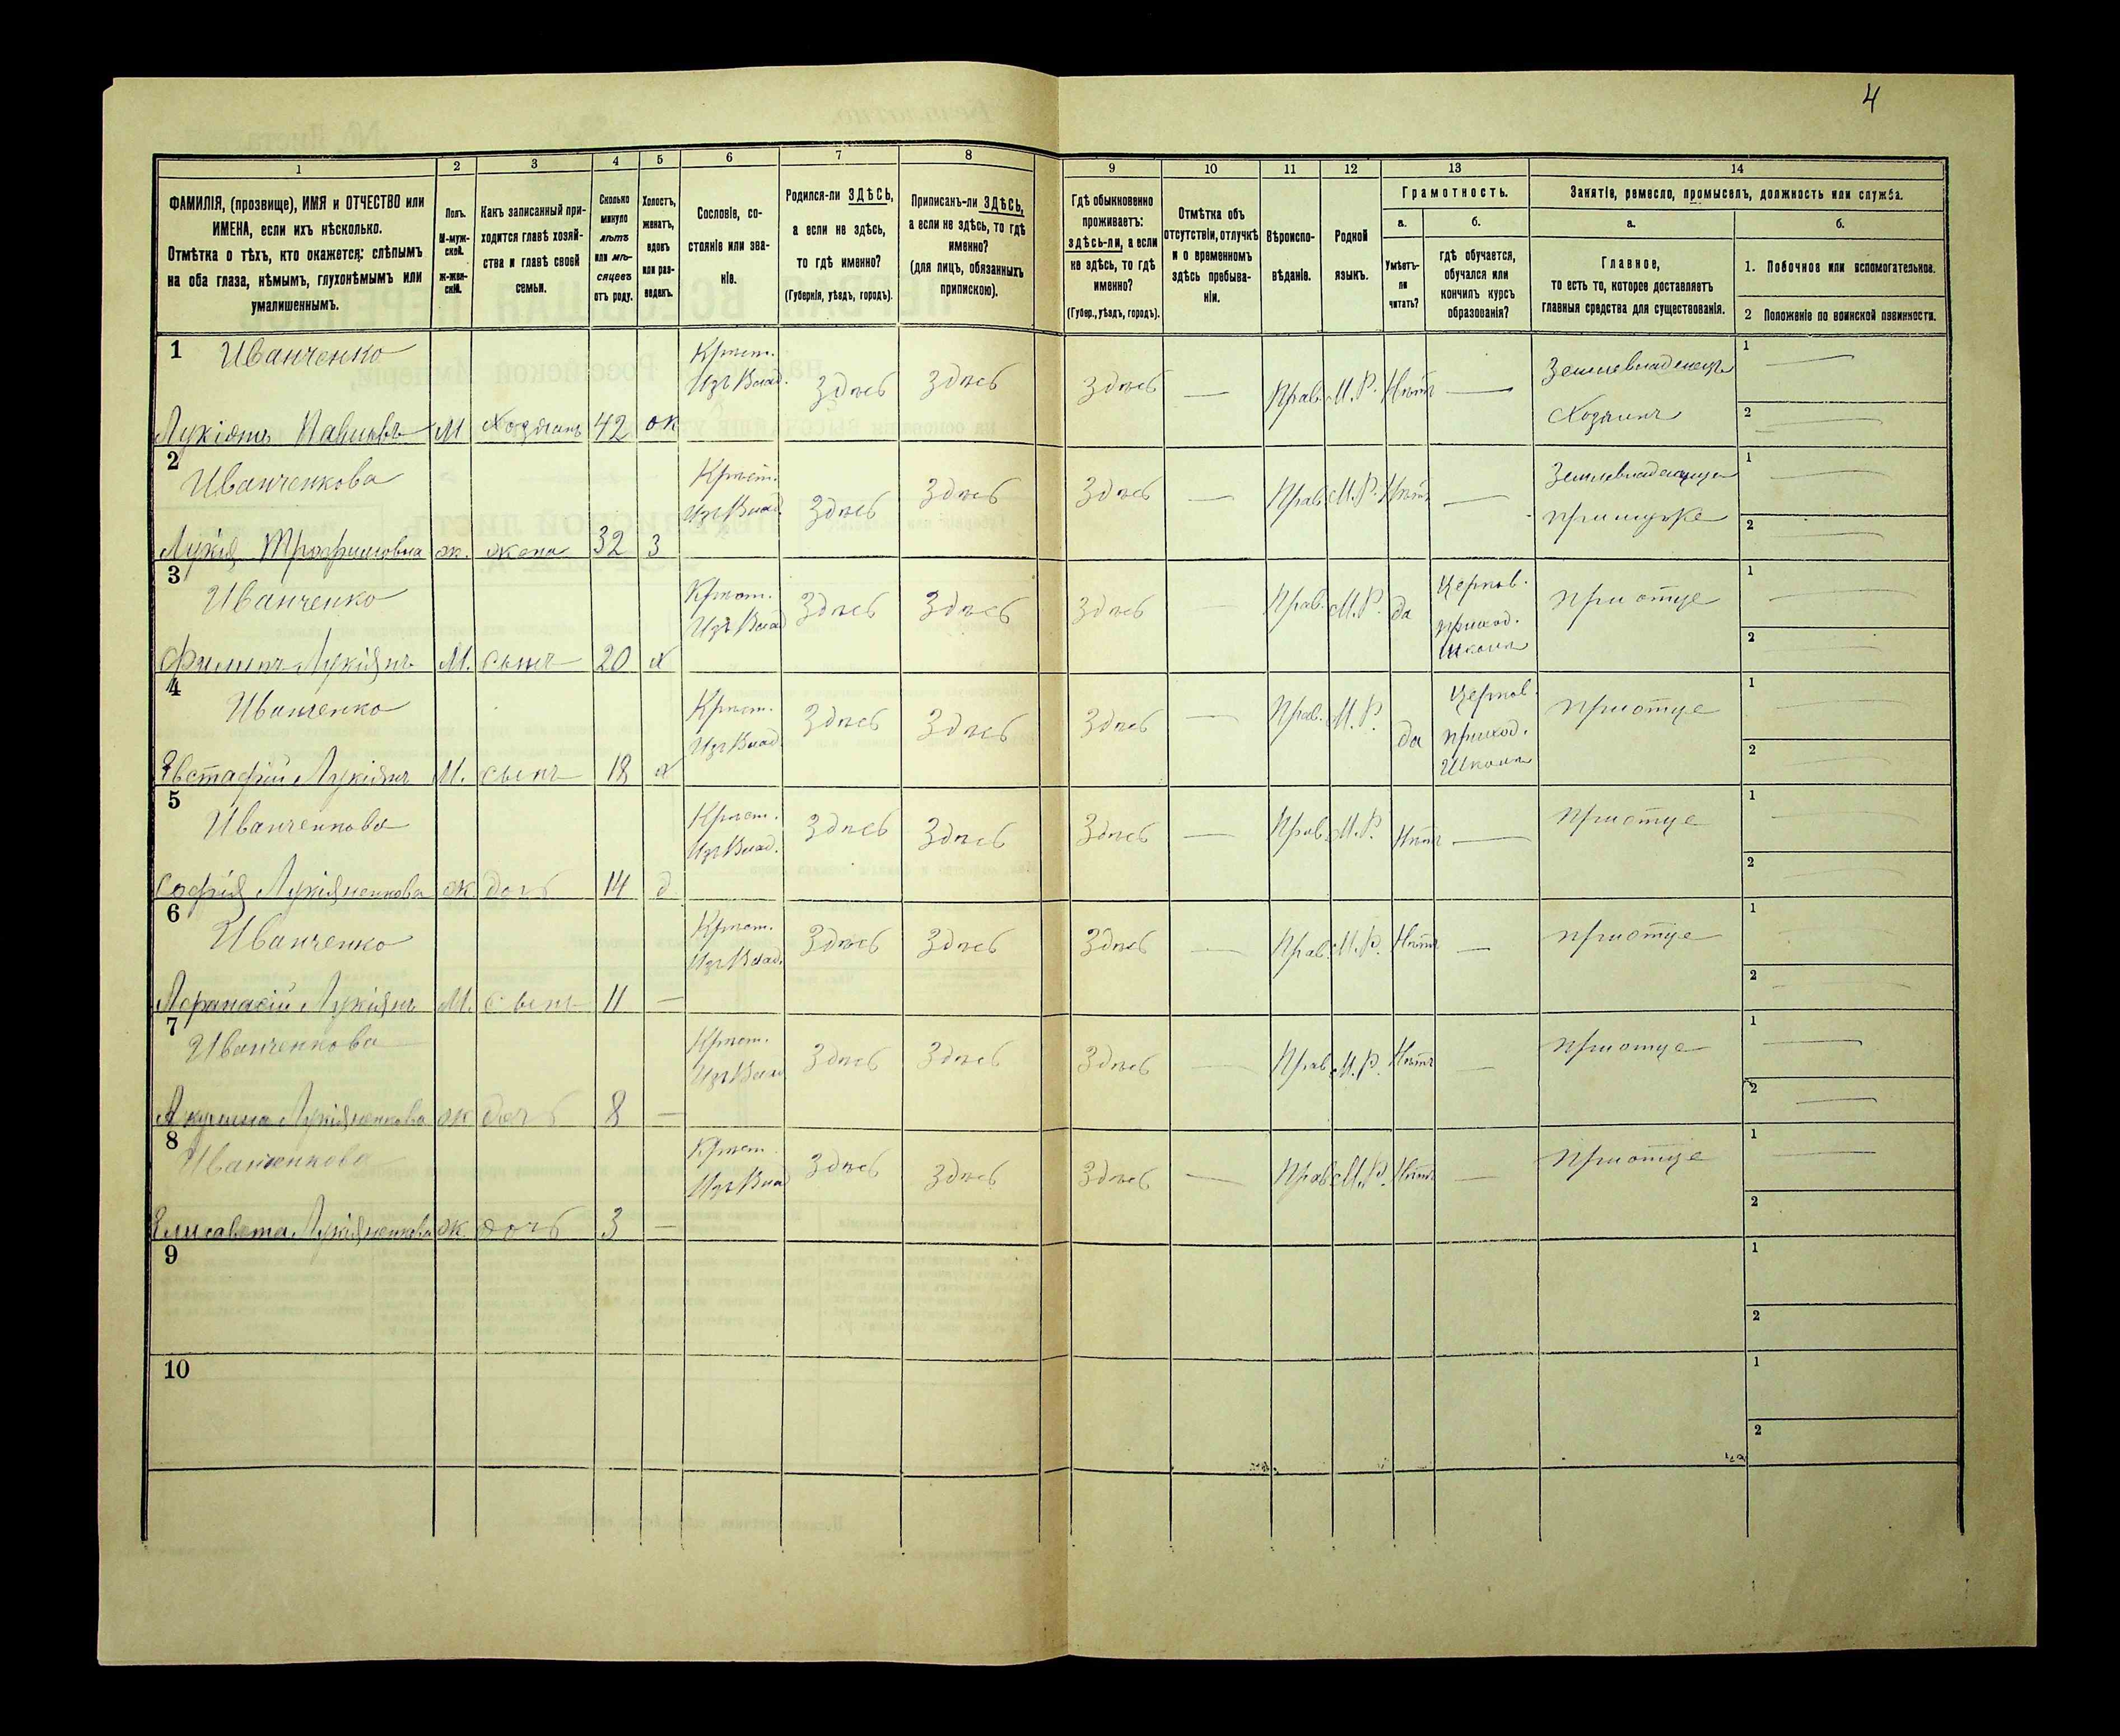 4
1
2
3
4
5
6
7
8
9
10
11
12
13
14
ФАМИЛІЯ, (прозвище), ИМЯ и ОТЧЕСТВО или
ИМЕНА, если ихъ нѣсколько.
Отмѣтка о тѣхъ, кто окажется: слѣпымъ
на оба глаза, нѣмымъ, глухонѣмымъ или
умалишеннымъ.
Полъ.
М-муж-
ской.
ж-жен-
скій.
Какъ записанный при-
ходится главѣ хозяй-
ства и главѣ своей
семьи.
Сколько
минуло
лѣтъ
или мѣ-
сяцевъ
отъ роду.
Холостъ,
женатъ,
вдовъ
или раз-
веденъ.
Сословіе, со-
стояніе или зва-
ніе.
Родился-ли ЗДѢСЬ,
а если не здѣсь,
то гдѣ именно?
(Губернія, уѣздъ, городъ).
Приписанъ-ли ЗДѢСЬ,
а если не здѣсь, то гдѣ
именно?
(для лицъ, обязанныхъ
припискою).
Гдѣ обыкновенно
проживаетъ:
здѣсь-ли, а если
не здѣсь, то гдѣ
именно?
(Губер., уѣздъ, городъ).
Отмѣтка объ
отсутствіи, отлучкѣ
и о временномъ
здѣсь пребыва-
ніи.
Вѣроиспо-
вѣданіе.
Родной
языкъ.
Грамотность.
а.
Умѣетъ-
ли
читать?
б.
гдѣ обучается,
обучался или
кончилъ курсъ
образованія?
Занятіе, ремесло, промыселъ, должность или служба.
а.
Главное,
то есть то, которое доставляетъ
главныя средства для существованія.
б.
1. Побочное или вспомогательное.
2 Положеніе по воинской повинности.
1 Иванченко
Крѣст. Изъ Влад. Здѣсь Здѣсь Здѣсь — Прав. М.Р. Нѣтъ — Землевладелецъ 1 —
Лукіянъ Павловъ М Хозяинъ 42 ж Хозяинъ 2 —
2 Иванченкова
Крѣст. Изъ Влад. Здѣсь Здѣсь Здѣсь — Прав. М.Р. Нѣтъ — 1 —
Лукія Трофимовна ж. жена 32 З при мужѣ 2 —
3 Иванченко
Крѣст. Изъ Влад Здѣсь Здѣсь Здѣсь — Прав. М.Р. да Церков. приход. Школа при отце 1 —
Филипъ Лукіянъ М. сынъ 20 х 2 —
4 Иванченко
Крѣст. Изъ Влад. Здѣсь Здѣсь Здѣсь — Прав. М.Р. да Церков. приход. Школа при отце 1 —
Евстафій Лукіянъ М. сынъ 18 х 2 —
5 Иванченкова
Крѣст. Изъ Влад. Здѣсь Здѣсь Здѣсь — Прав. М.Р. Нѣтъ — при отце 1 —
Софія Лукіяненкова ж дочь 14 д 2 —
6 Иванченко
Крѣст. Изъ Влад. Здѣсь Здѣсь Здѣсь — Прав. М.Р. Нѣтъ — при отце 1 —
Афанасій Лукіянъ М. сынъ 11 — 2 —
7 Иванченкова
Крѣст. Изъ Влад Здѣсь Здѣсь Здѣсь — Прав. М.Р. Нѣтъ — при отце 1 —
Акулина Лукіяненкова ж дочь 8 — 2 —
8 Иванченкова
Крѣст. Изъ Влад Здѣсь Здѣсь Здѣсь — Прав. М.Р. Нѣтъ — при отце 1 —
Елисавета Лукіяненкова ж. дочь 3 — 2
9
1
2
10
1
2